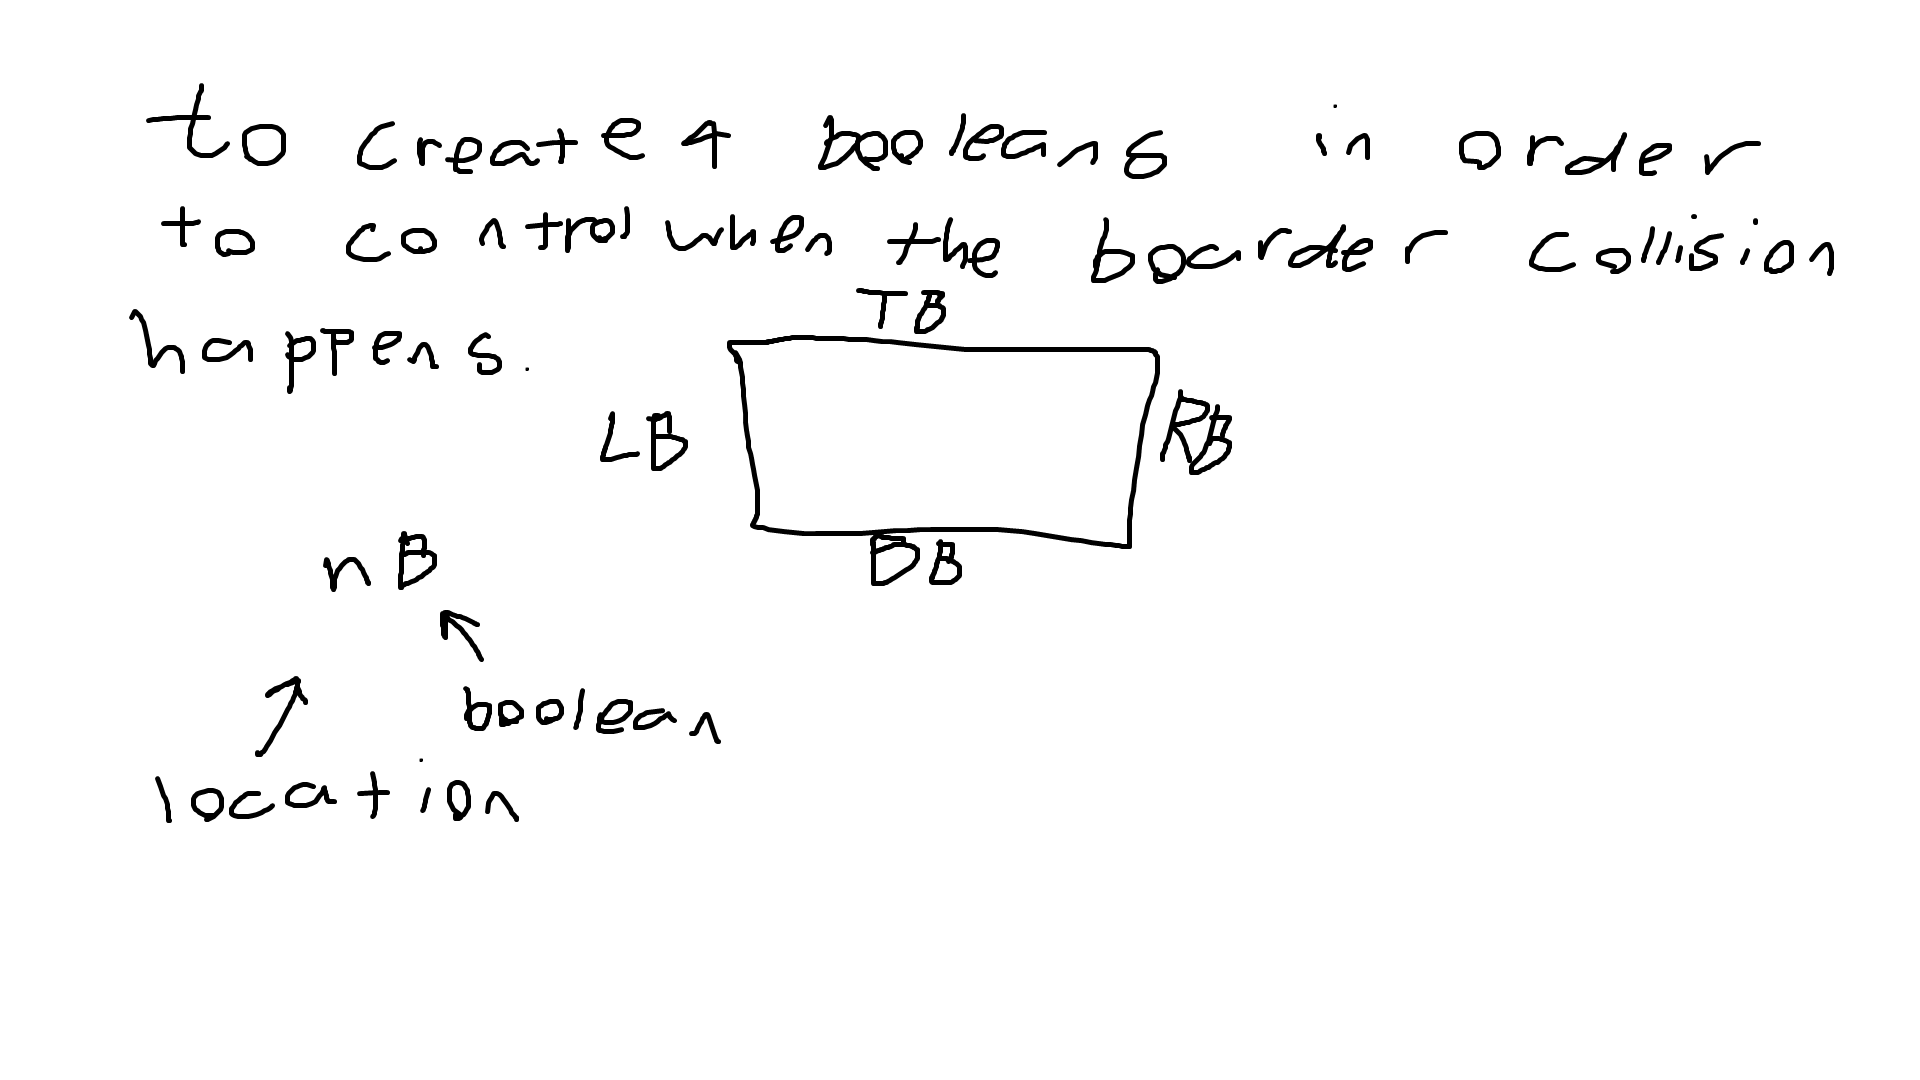 to create 4 booleans in order
to control when the boarder collision
happens.
TB
LB
RB
BB
nB
boolean
location